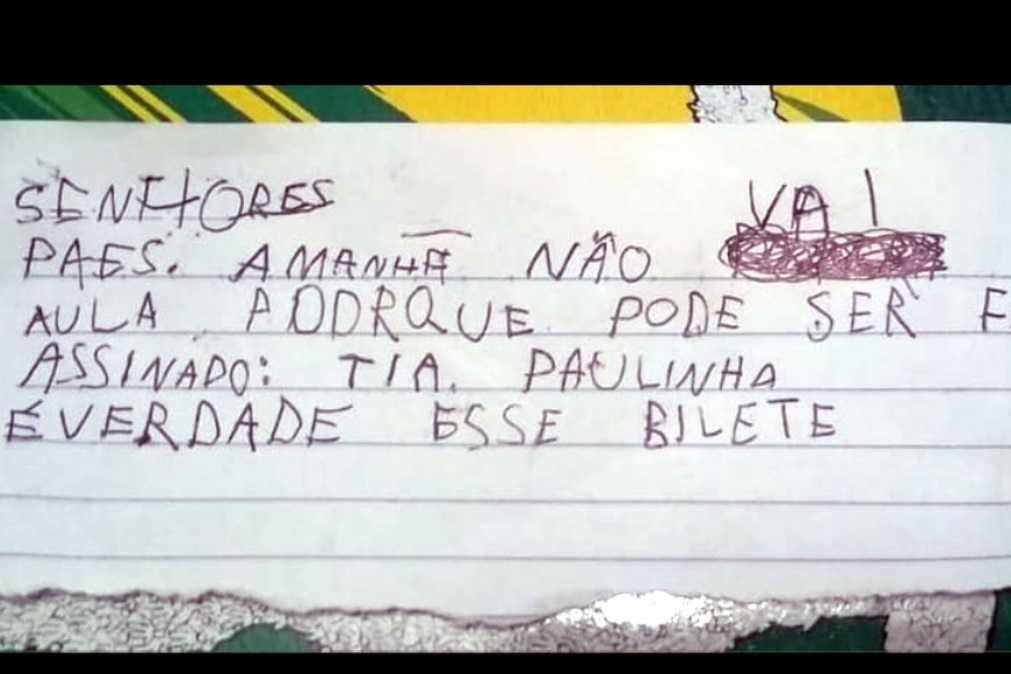 SENHORES
PAES. AMANHÃ NÃO VAI
AULA PODRQUE PODE SER
ASSINADO: TIA. PAULINHA
É VERDADE ESSE BILETE